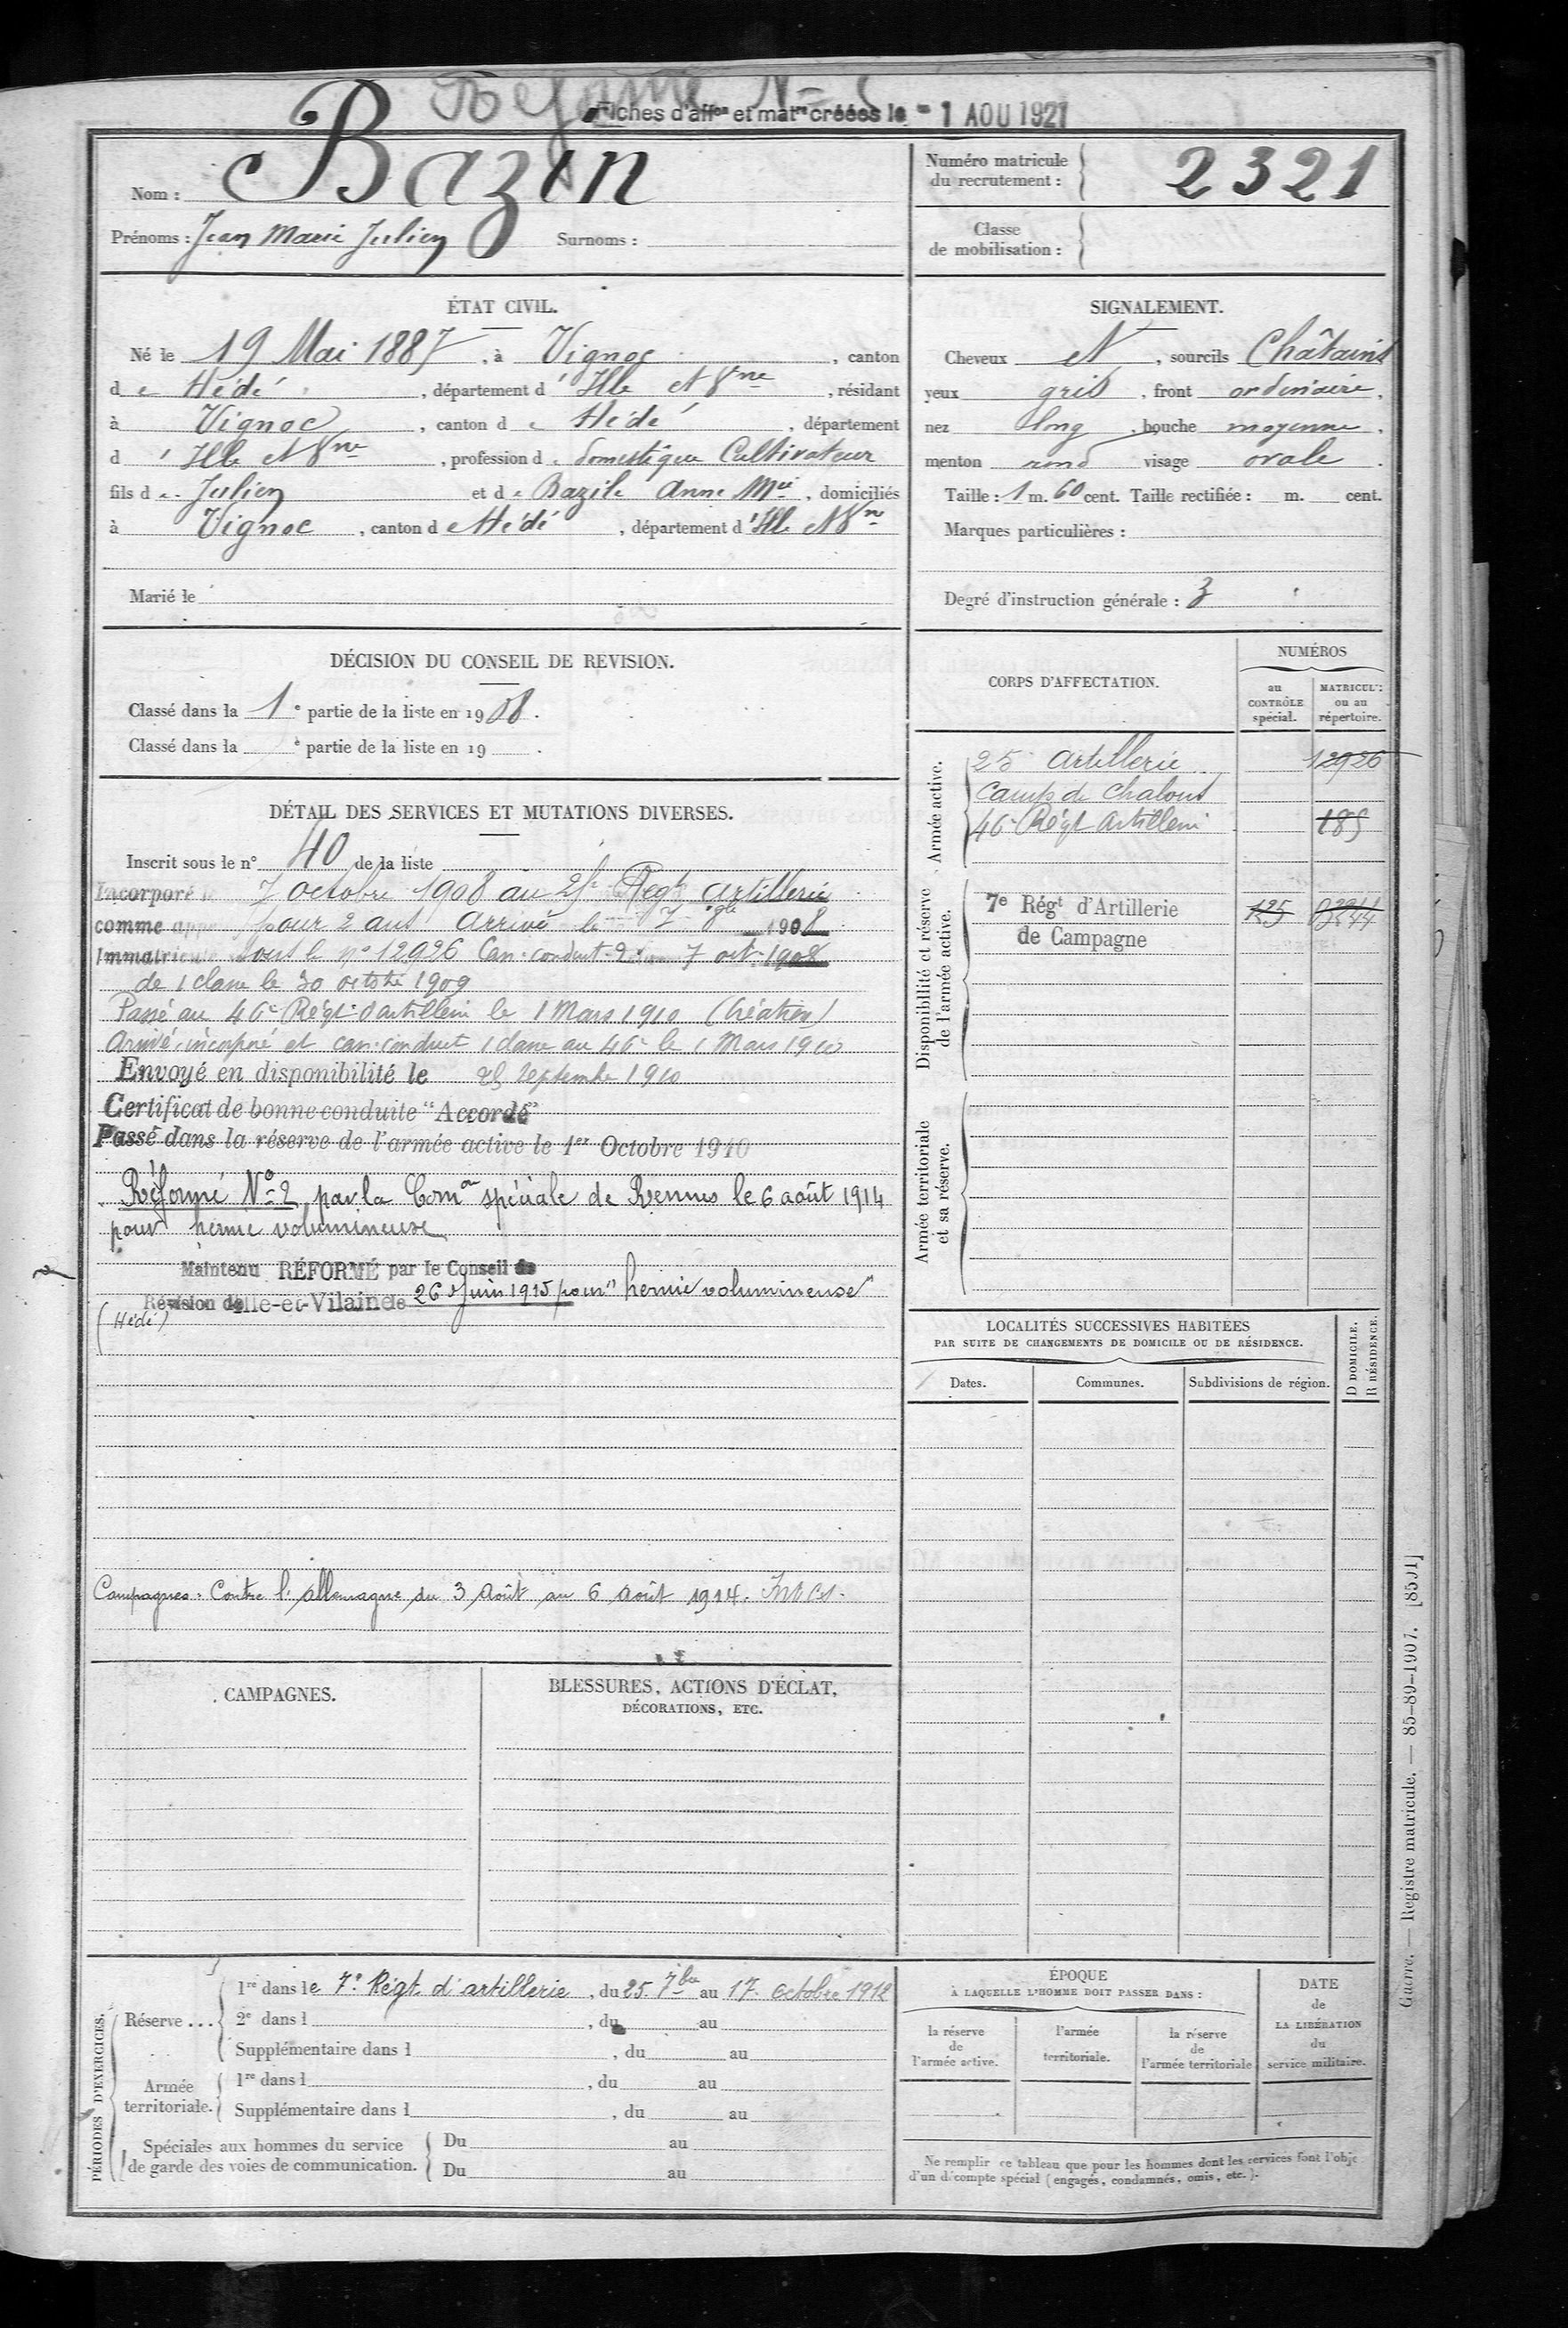 Réformé N° 2
Fiches d'aff<sup>on</sup> et mat<sup>re</sup> créées le - 1 AOU 1921
Nom : Bazin
Prénoms : Jean Marie Julien Surnoms :
Numéro matricule du recrutement : 2321
Classe de mobilisation :
ÉTAT CIVIL.
Né le 19 Mai 1887, à Vignoc, canton
de Hédé, département d'Ille et Vne, résidant
à Vignoc, canton de Hédé, département
d'Ille et Vne, profession de domestique Cultivateur
fils de Julien et de Bazile Anne Mie, domiciliés
à Vignoc, canton de Hédé, département d'Ille et Vne
Marié le
SIGNALEMENT.
Cheveux et, sourcils Châtains
yeux gris, front ordinaire,
nez long, bouche moyenne,
menton rond visage ovale.
Taille : 1 m. 60 cent. Taille rectifiée : m. cent.
Marques particulières :
Degré d'instruction générale : 3
DÉCISION DU CONSEIL DE RÉVISION.
Classé dans la 1e partie de la liste en 1908.
Classé dans la e partie de la liste en 19 .
DÉTAIL DES SERVICES ET MUTATIONS DIVERSES.
Inscrit sous le n° 40 de la liste
Incorporé le 7 octobre 1908 au 25e Régt Artillerie
comme appelé pour 2 ans Arrivé le 7 8bre 1908
Immatriculé sous le n° 12926 Can. conduct. 2e 7 oct. 1908
de 1 classe le 30 octobre 1909
Passé au 46e Régt d'artillerie le 1 Mars 1910 (Création)
Arrivé, incorporé et can. conduct 1 classe au 46e le 1 Mars 1910
Envoyé en disponibilité le 25 Septembre 1910
Certificat de bonne conduite "Accordé"
Passé dans la réserve de l'armée active le 1er Octobre 1910
Réformé N° 2 par la Comon spéciale de Rennes le 6 août 1914
pour hernie volumineuse
Maintenu RÉFORMÉ par le Conseil de
Révision de Ille-et-Vilaine le 26 Juin 1915 pour "hernie volumineuse"
(Hédé)
Campagnes : Contre l'Allemagne du 3 Août au 6 Août 1914.
CORPS D'AFFECTATION.
NUMÉROS
au CONTRÔLE spécial.
MATRICULE ou au répertoire.
Armée active.
25e Artillerie 12926
Camp de Chalons
46e Régt Artillerie 185
Disponibilité et réserve de l'armée active.
7e Régt d'Artillerie 125
de Campagne
Armée territoriale et sa réserve.
LOCALITÉS SUCCESSIVES HABITÉES
PAR SUITE DE CHANGEMENTS DE DOMICILE OU DE RÉSIDENCE.
Dates. Communes. Subdivisions de région.
D DOMICILE.
R RÉSIDENCE.
CAMPAGNES.
BLESSURES, ACTIONS D'ÉCLAT,
DÉCORATIONS, ETC.
PÉRIODES D'EXERCICES.
Réserve ...
1re dans le 7e Régt d'artillerie, du 25 7bre au 17 Octobre 1912
2e dans l , du au
Supplémentaire dans l , du au
Armée territoriale.
1re dans l , du au
Supplémentaire dans l , du au
Spéciales aux hommes du service
de garde des voies de communication.
Du au
Du au
ÉPOQUE
À LAQUELLE L'HOMME DOIT PASSER DANS :
la réserve de l'armée active.
l'armée territoriale.
la réserve de l'armée territoriale
DATE de LA LIBÉRATION du service militaire.
Ne remplir ce tableau que pour les hommes dont les services font l'obje
d'un décompte spécial (engagés, condamnés, omis, etc.).
Guerre. — Registre matricule. — 85-89-1907. [8501]